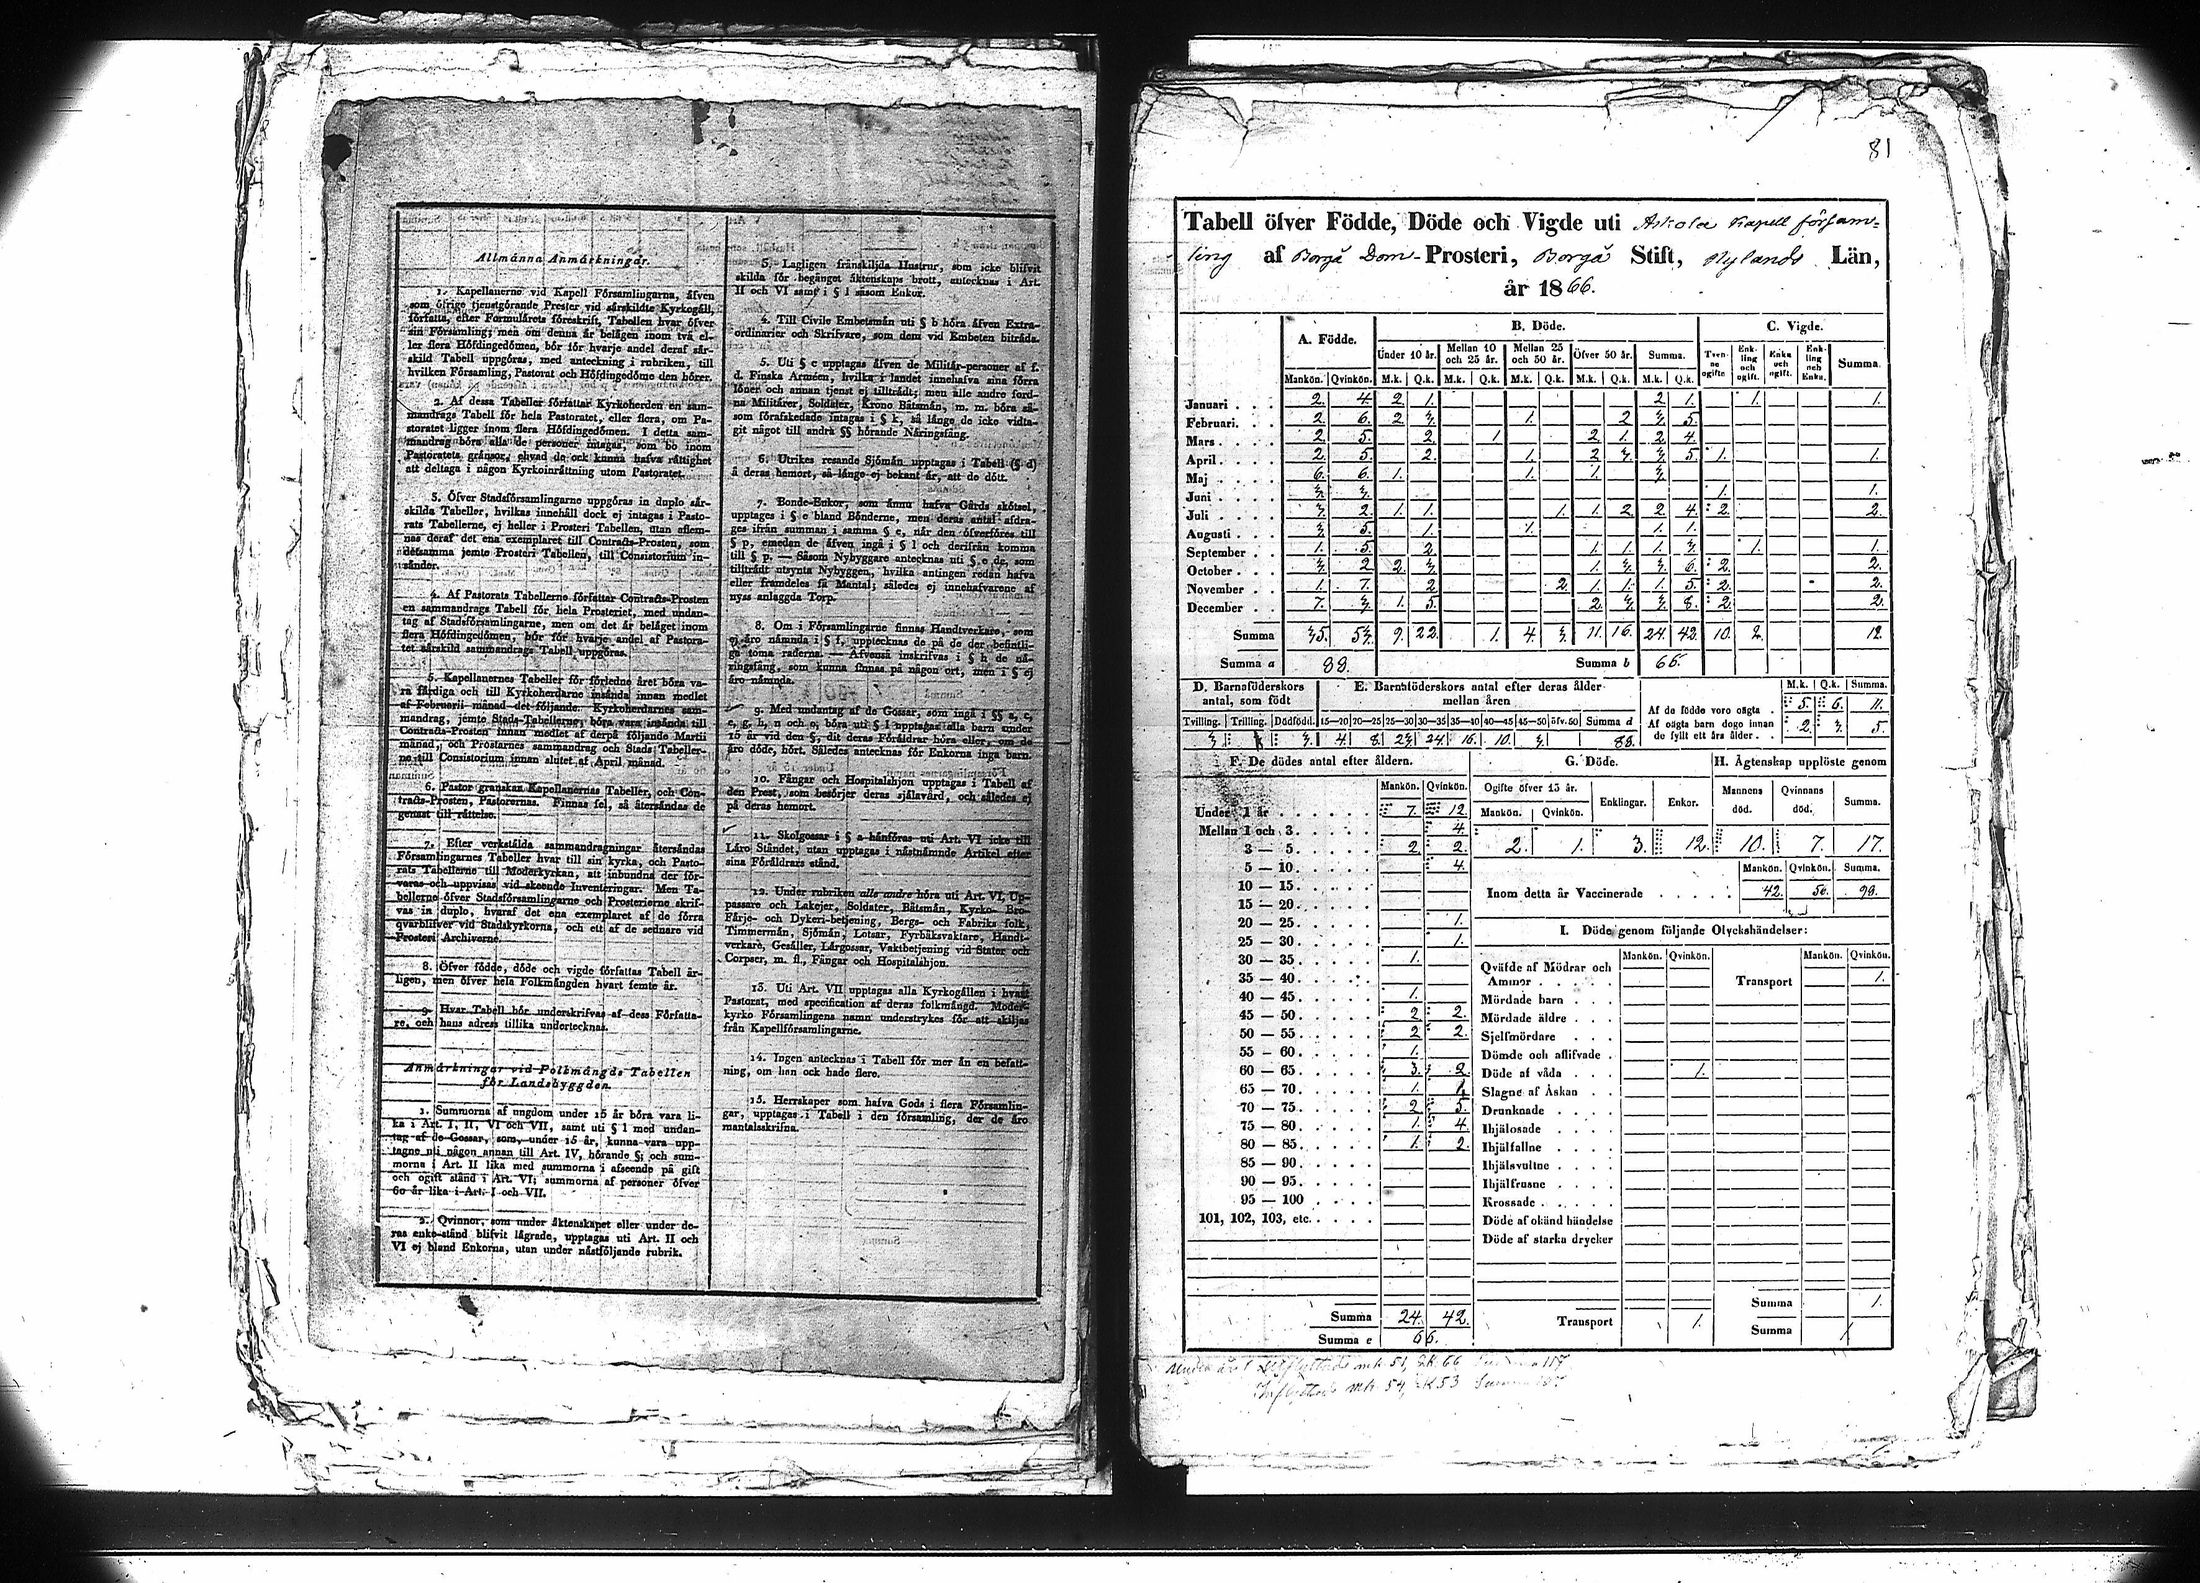 Allmänna Anmärkningar.
1. Kapellanerne vid Kapell Församlingarna, äfven
som öfrige tjenstgörande Prester vid särskildte Kyrkogäll,
författa, efter Formulärets föreskrift, Tabellen hvar öfver
sin Församling; men om denna är belägen inom två el-
ler flera Höfdingedömen, bör för hvarje andel deraf sär-
skild Tabell uppgöras, med anteckning i rubriken, till
hvilken Församling, Pastorat och Höfdingedöme den hörer.
2. Af dessa Tabeller författar Kyrkoherden en sam-
mandrags Tabell för hela Pastoratet, eller flera, om Pa-
storatet ligger inom flera Höfdingedömen. I detta sam-
mandrag böra alla de personer intagas, som bo inom
Pastoratets gränsor, ehvad de ock kunna hafva rättighet
att deltaga i någon Kyrkoinrättning utom Pastoratet.
3. Öfver Stadsförsamlingarne uppgöras in duplo sär-
skilda Tabeller, hvilkas innehåll dock ej intagas i Pasto-
rats Tabellerne, ej heller i Prosteri Tabellen, utan aflem-
nas deraf det ena exemplaret till Contracts-Prosten, som
detsamma jemte Prosteri Tabellen, till Consistorium in-
sänder.
4. Af Pastorats Tabellerne författar Contracts-Prosten
en sammandrags Tabell för hela Prosteriet, med undan-
tag af Stadsförsamlingarne, men om det är beläget inom
flera Höfdingedömen, bör för hvarje andel af Pastora-
tet särskild sammandrags Tabell uppgöras.
5. Kapellanernes Tabeller för förledne året böra va-
ra färdiga och till Kyrkoherdarne insända innan medlet
af Februarii månad det följande. Kyrkoherdarnes sam-
mandrag, jemte Stads-Tabellerne, böra vara insända till
Contracts-Prosten innan medlet af derpå följande Martii
månad, och Prostarnes sammandrag och Stads Tabeller-
ne till Consistorium innan slutet af April månad.
6. Pastor granskar Kapellanernas Tabeller, och Con-
tracts-Prosten, Pastorernas. Finnas fel, så återsändas de
genast till rättelse.
7. Efter verkställda sammandragningar återsändas
Församlingarnes Tabeller hvar till sin kyrka, och Pasto-
rats Tabellerne till Moderkyrkan, att inbundna der för-
varas och uppvisas vid skeende Inventeringar. Men Ta-
bellerne öfver Stadsförsamlingarne och Prosterierne skrif-
vas in duplo, hvaraf det ena exemplaret af de förra
qvarblifver vid Stadskyrkorna, och ett af de sednare vid
Prosteri Archiverne.
8. Öfver födde, döde och vigde författas Tabell år-
ligen, men öfver hela Folkmängden hvart femte år.
9. Hvar Tabell bör underskrifvas af dess Författa-
re, och hans adress tillika undertecknas.
Anmärkningar vid Folkmängds Tabellen
för Landsbyggden.
1. Summorna af ungdom under 15 år böra vara li-
ka i Art. I, II, VI och VII, samt uti § l med undan-
tag af de Gossar, som, under 15 år, kunna vara upp-
tagne uti någon annan till Art. IV, hörande §; och sum-
morna i Art. II lika med summorna i afseende på gift
och ogift stånd i Art. VI; summorna af personer öfver
60 år lika i Art. I och VII.
2. Qvinnor, som under äktenskapet eller under de-
ras enke-stånd blifvit lägrade, upptagas uti Art. II och
VI ej bland Enkorna, utan under nästföljande rubrik.
3. Lagligen frånskiljda Hustrur, som icke blifvit
skilda för begånget äktenskaps brott, antecknas i Art.
II och VI samt i § l såsom Enkor.
4. Till Civile Embetsmän uti § b höra äfven Extra-
ordinarier och Skrifvare, som dem vid Embeten biträda.
5. Uti § c upptagas äfven de Militär-personer af f.
d. Finska Arméen, hvilka i landet innehafva sina förra
löner och annan tjenst ej tillträdt; men alle andre ford-
na Militärer, Soldater, Krono Båtsmän, m. m. böra så-
som förafskedade intagas i § k, så länge de icke vidta-
git något till andra §§ hörande Näringsfång.
6. Utrikes resande Sjömän upptagas i Tabell (§ d)
å deras hemort, så länge ej bekant är, att de dött.
7. Bonde-Enkor, som ännu hafva Gårds skötsel,
upptages i § e bland Bönderne, men deras antal afdra-
ges ifrån summan i samma § e, när den öfverföres till
§ p, emedan de äfven ingå i § l och derifrån komma
till § p. — Såsom Nybyggare antecknas uti § e de, som
tillträdt utsynta Nybyggen, hvilka antingen redan hafva
eller framdeles få Mantal; således ej innehafvarene af
nyss anlaggda Torp.
8. Om i Församlingarne finnas Handtverkare, som
ej äro nämnda i § f, upptecknas de på de der befintli-
ga toma raderna. — Äfvenså inskrifvas i § h de nä-
ringsfång, som kunna finnas på någon ort, men i § ej
äro nämnda.
9. Med undantag af de Gossar, som ingå i §§ a, c,
e, g, h, n och o, böra uti § l upptagas alla barn under
15 år vid den §, dit deras Föräldrar höra eller, om de
äro döde, hört. Således antecknas för Enkorna inga barn.
10. Fångar och Hospitalshjon upptagas i Tabell af
den Prest, som besörjer deras själavård, och således ej
på deras hemort.
11. Skolgossar i § a hänföras uti Art. VI icke till
Läro Ståndet, utan upptagas i nästnämnde Artikel efter
sina Föräldrars stånd.
12. Under rubriken alls andre höra uti Art. VI, Up-
passare och Lakejer, Soldater, Båtsmän, Kyrko- Bro-
Färje- och Dykeri-betjening, Bergs- och Fabriks folk,
Timmermän, Sjömän, Lotsar, Fyrbåksvaktare, Handt-
verkare, Gesäller, Lärgossar, Vaktbetjening vid Stater och
Corpser, m. fl., Fångar och Hospitalshjon.
13. Uti Art. VII upptagas alla Kyrkogällen i hvart
Pastorat, med specification af deras folkmängd. Moder-
kyrko Församlingens namn understrykes för att skiljas
från Kapellförsamlingarne.
14. Ingen antecknas i Tabell för mer än en befatt-
ning, om han ock hade flere.
15. Herrskaper som hafva Gods i flera Församlin-
gar, upptagas i Tabell i den församling, der de äro
mantalsskrifna.
81
Tabell öfver Födde, Döde och Vigde uti Askola Kapell försam-
ling af Borgå Dom-Prosteri, Borgå Stift, Nylands Län,
år 1866.
A. Födde. B. Döde. C. Vigde.
Under 10 år. Mellan 10 och 25 år. Mellan 25 och 50 år. Öfver 50 år. Summa. Tvenne ogifte Enkling och ogift. Enka och ogift. Enkling och Enka. Summa.
Mankön. Qvinkön. M.k. Q.k. M.k. Q.k. M.k. Q.k. M.k. Q.k. M.k. Q.k.
Januari 2. 4. 2. 1. 2. 1. 1. 1.
Februari. 2. 6. 2. 3. 1. 2 3. 5.
Mars 2. 5. 2. 1 2. 1. 2. 4.
April. 2. 5. 2. 1. 2. 3. 3. 5. 1. 1.
Maj 6. 6. 1. 1. 1. 3.
Juni 3. 3. 1. 1.
Juli 3. 2. 1. 1. 1. 1. 2. 2. 4. 2. 2.
Augusti 3. 5. 1. 1. 1. 1.
September 1. 5. 2. 1. 1. 1. 3. 1. 1.
October 3. 2 2. 3. 1. 3. 3. 6. 2. 2.
November 1. 7. 2 2. 1. 1. 1. 5. 2. 2.
December 7. 3. 1. 5. 2. 3. 3. 8. 2. 2.
Summa 35. 53. 9. 22. 1. 4. 3. 11. 16. 24. 42. 10. 2. 12.
Summa a 88. Summa b 66.
D. Barnaföderskors antal, som födt
E. Barnaföderskors antal efter deras ålder mellan åren
M.k. Q.k. Summa.
Tvilling. Trilling. Dödfödd. 15—20 20—25 25—30 30—35 35—40 40—45 45—50 öfv.50 Summa d
3. 3. 4. 8. 23. 24. 16. 10. 3. 88.
Af de födde voro oägta 5. 6. 11.
Af oägta barn dogo innan de fyllt ett års ålder 2. 3. 5.
F. De dödes antal efter åldern.
Mankön. Qvinkön.
Under 1 år 7. 12.
Mellan 1 och 3. 4.
3 — 5. 2. 2.
5 — 10. 4.
10 — 15.
15 — 20.
20 — 25. 1.
25 — 30. 1.
30 — 35. 1.
35 — 40.
40 — 45. 1.
45 — 50. 2. 2.
50 — 55. 2 2.
55 — 60. 1.
60 — 65. 3. 2.
65 — 70. 1. 1.
70 — 75. 2 5.
75 — 80. 1. 4.
80 — 85. 1. 2.
85 — 90.
90 — 95.
95 — 100
101, 102, 103, etc.
Summa 24. 42.
Summa e 66.
G. Döde.
Ogifte öfver 15 år. Enklingar. Enkor.
Mankön. Qvinkön.
2. 1. 3. 12.
H. Ägtenskap upplöste genom
Mannens död. Qvinnans död. Summa.
10. 7. 17.
Mankön. Qvinkön. Summa.
Inom detta år Vaccinerade 42. 56. 98.
I. Döde genom följande Olyckshändelser:
Mankön. Qvinkön. Mankön. Qvinkön.
Qväfde af Mödrar och
Ammor
Mördade barn
Mördade äldre
Sjelfmördare
Dömde och aflifvade
Döde af våda 1.
Slagne af Åskan
Drunknade
Ihjälosade
Ihjälfallne
Ihjälsvultne
Ihjälfrusne
Krossade
Döde af okänd händelse
Döde af starka drycker
Transport 1.
Transport 1.
Summa 1.
Summa 1
Utflyttade mk. 51, 66
Inflyttade mk. 54, 53